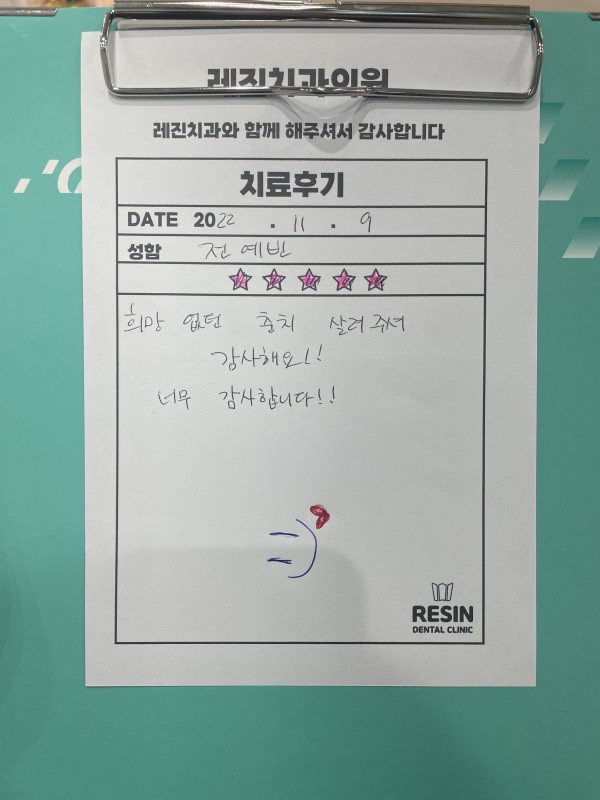 레진치과의원
레진치과와 함께 해주셔서 감사합니다
치료후기
DATE 2022 . 11 . 9
성함 전예빈
희망 없던 충치 살려주셔
감사해요!!
너무 감사합니다!!
RESIN
DENTAL CLINIC